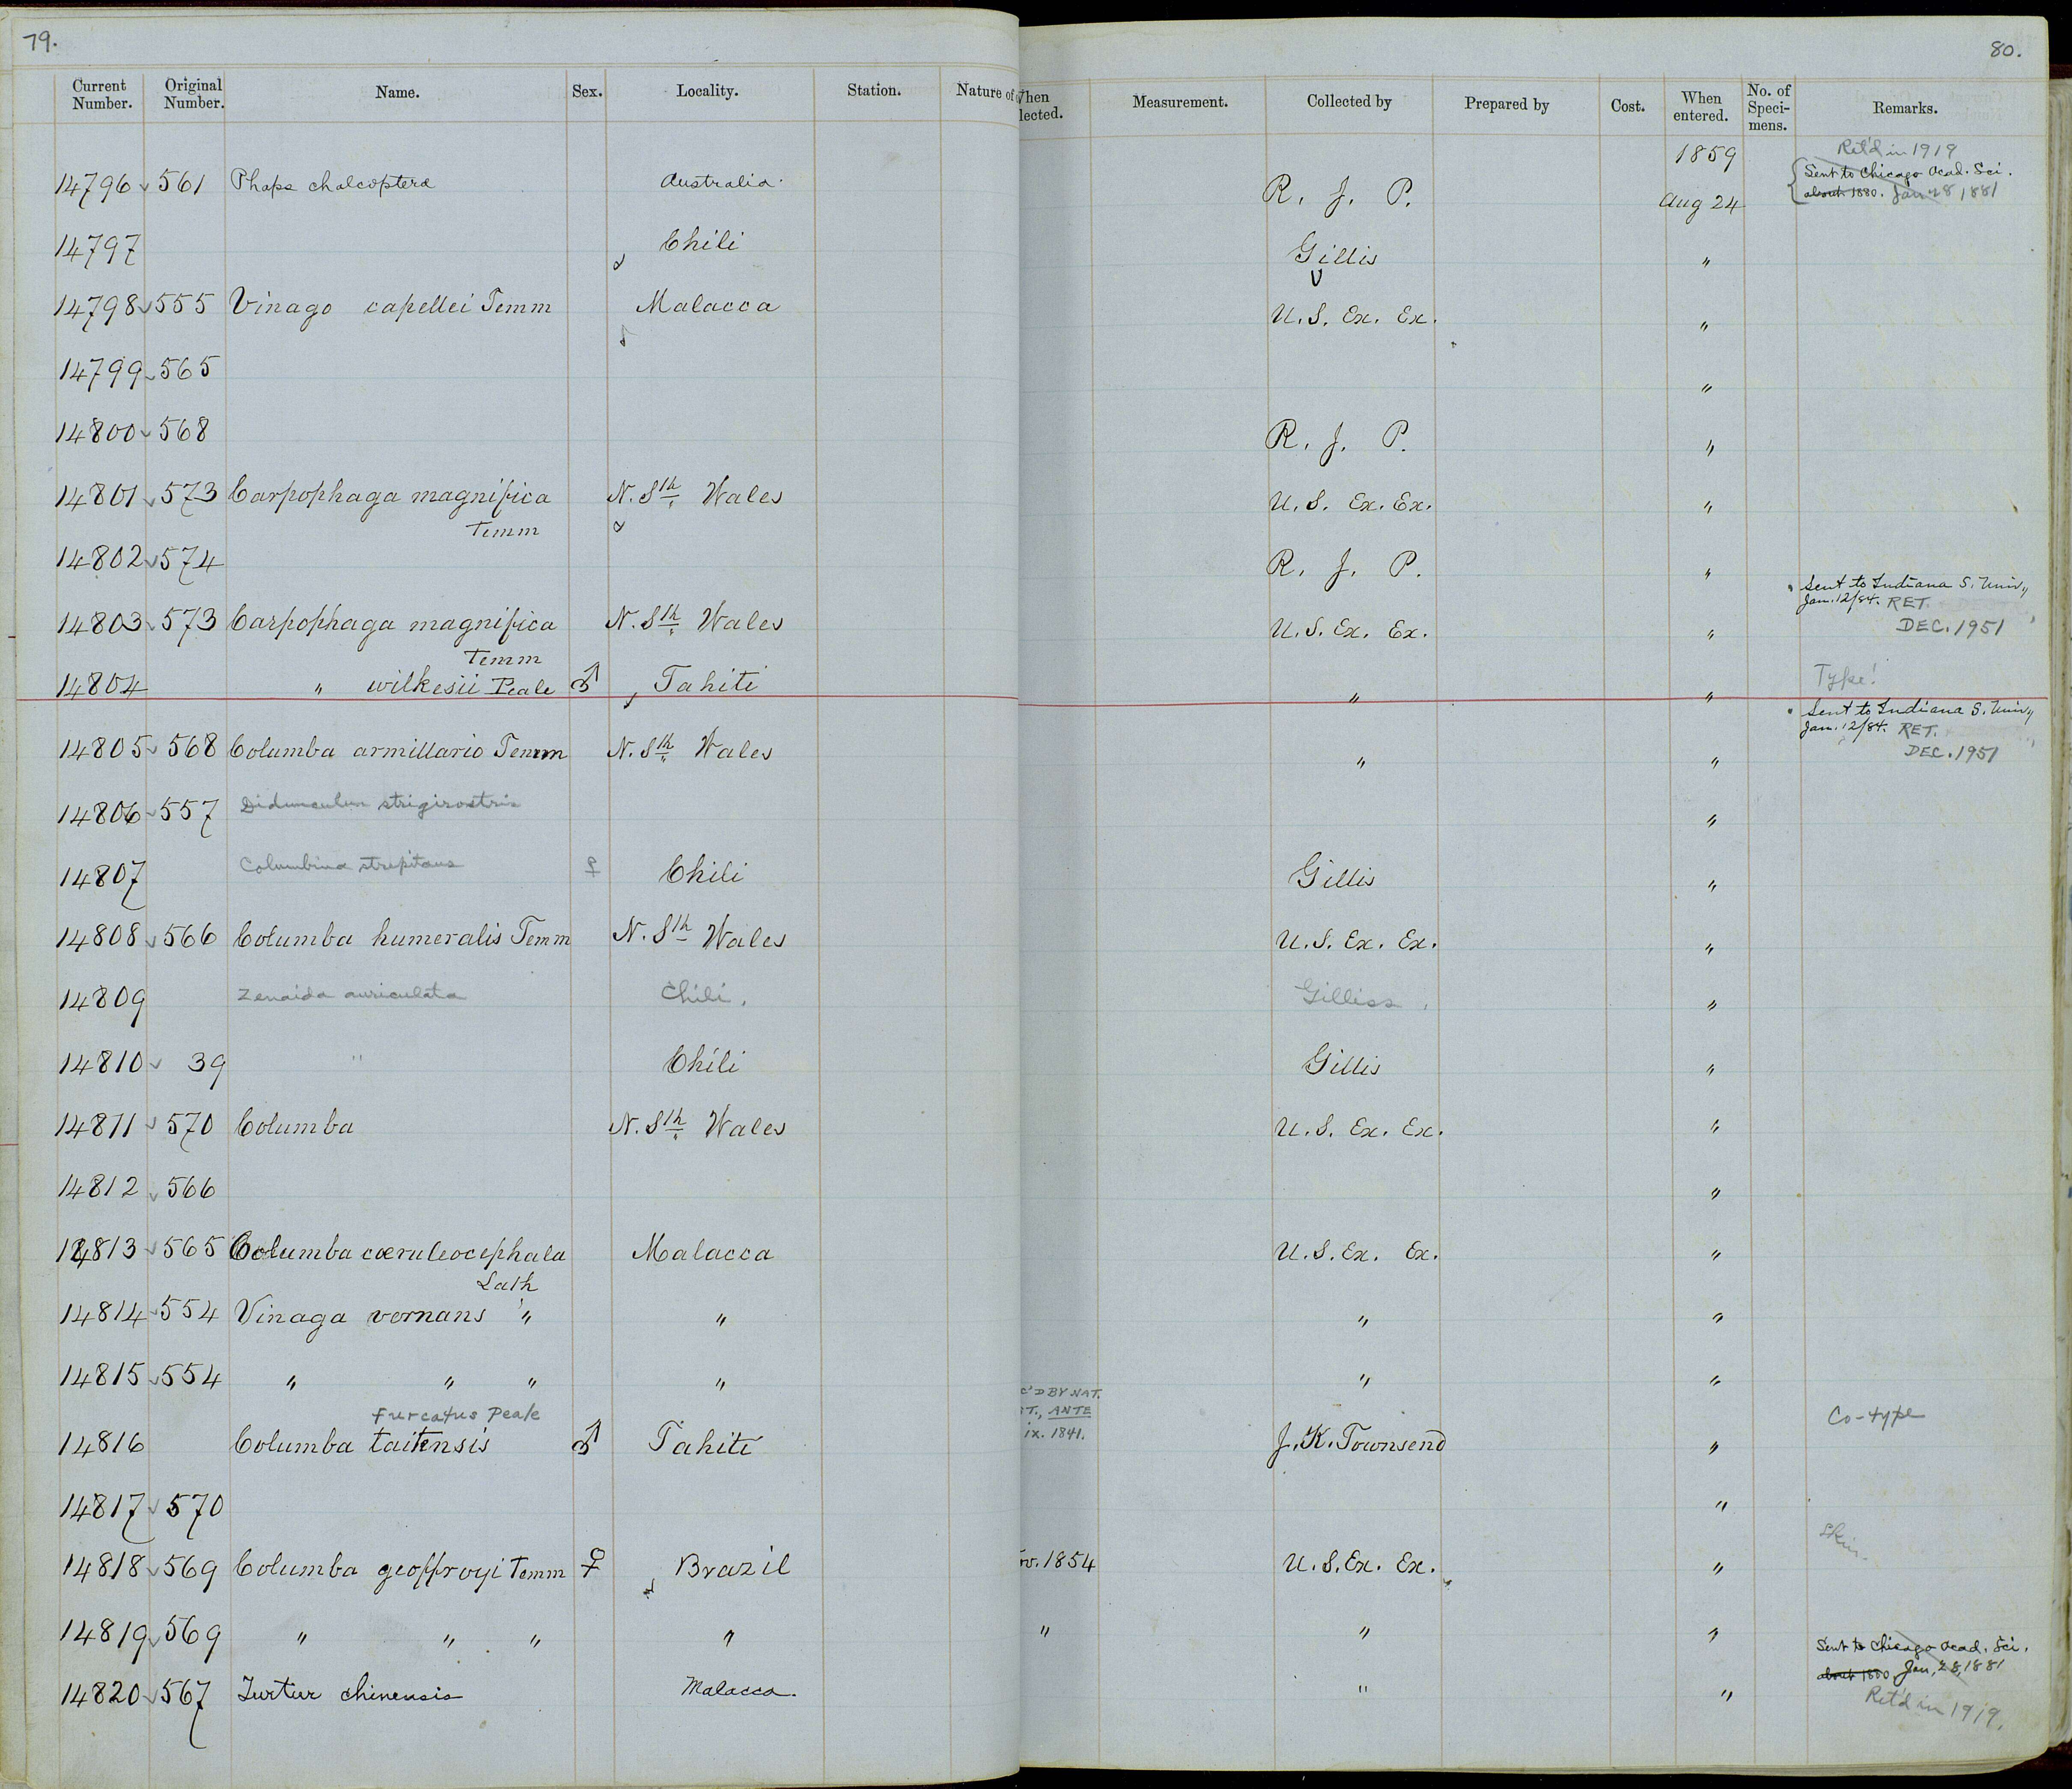 79.
80.
Current Number. Original Number. Name. Sex. Locality. Station. Nature of When Collected. Measurement. Collected by Prepared by Cost. When entered. No. of Specimens. Remarks.
1859 Ret'd in 1919
14796 561 Phaps chalcoptera Australia. R. J. P. Aug 24 Sent to Chicago Acad. Sci. about 1880. Jan 28, 1881
14797 Chili Gillis "
14798 555 Vinago capellei Temm Malacca U.S. Ex. Ex. "
14799 565 "
14800 568 R. J. P. "
14801 573 Carpophaga magnifica Temm N. Sth Wales U.S. Ex. Ex. "
14802 574 R. J. P. "
14803 573 Carpophaga magnifica Temm N. Sth Wales U.S. Ex. Ex. " Sent to Indiana S. Univ., Jan. 12/84. RET. DEC. 1951
14804 " wilkesii Peale ♂ Tahiti " " Type!
14805 568 Columba armillario Temm N. Sth Wales " " Sent to Indiana S. Univ., Jan. 12/84. RET. DEC. 1951
14806 557 Didunculus strigirostris "
14807 Columbina strepitans ♀ Chili Gillis "
14808 566 Columba humeralis Temm N. Sth Wales U.S. Ex. Ex. "
14809 Zenaida auriculata Chili. Gilliss "
14810 39 " Chili Gillis "
14811 570 Columba N. Sth Wales U.S. Ex. Ex. "
14812 566 "
14813 565 Columba cæruleocephala Lath Malacca U.S. Ex. Ex. "
14814 554 Vinaga vernans " " " "
14815 554 " " " " " "
furcatus Peale
14816 Columba taitensis ♂ Tahiti C'D BY NAT. T., ANTE ix. 1841. J. K. Townsend " Co-type
14817 570 "
14818 569 Columba geoffroyi Temm ♀ Brazil ov. 1854 U.S. Ex. Ex. " Skin.
14819 569 " " " " " " "
14820 567 Turtur chinensis Malacca. " " Sent to Chicago Acad. Sci. about 1880 Jan, 28, 1881
Ret'd in 1919.